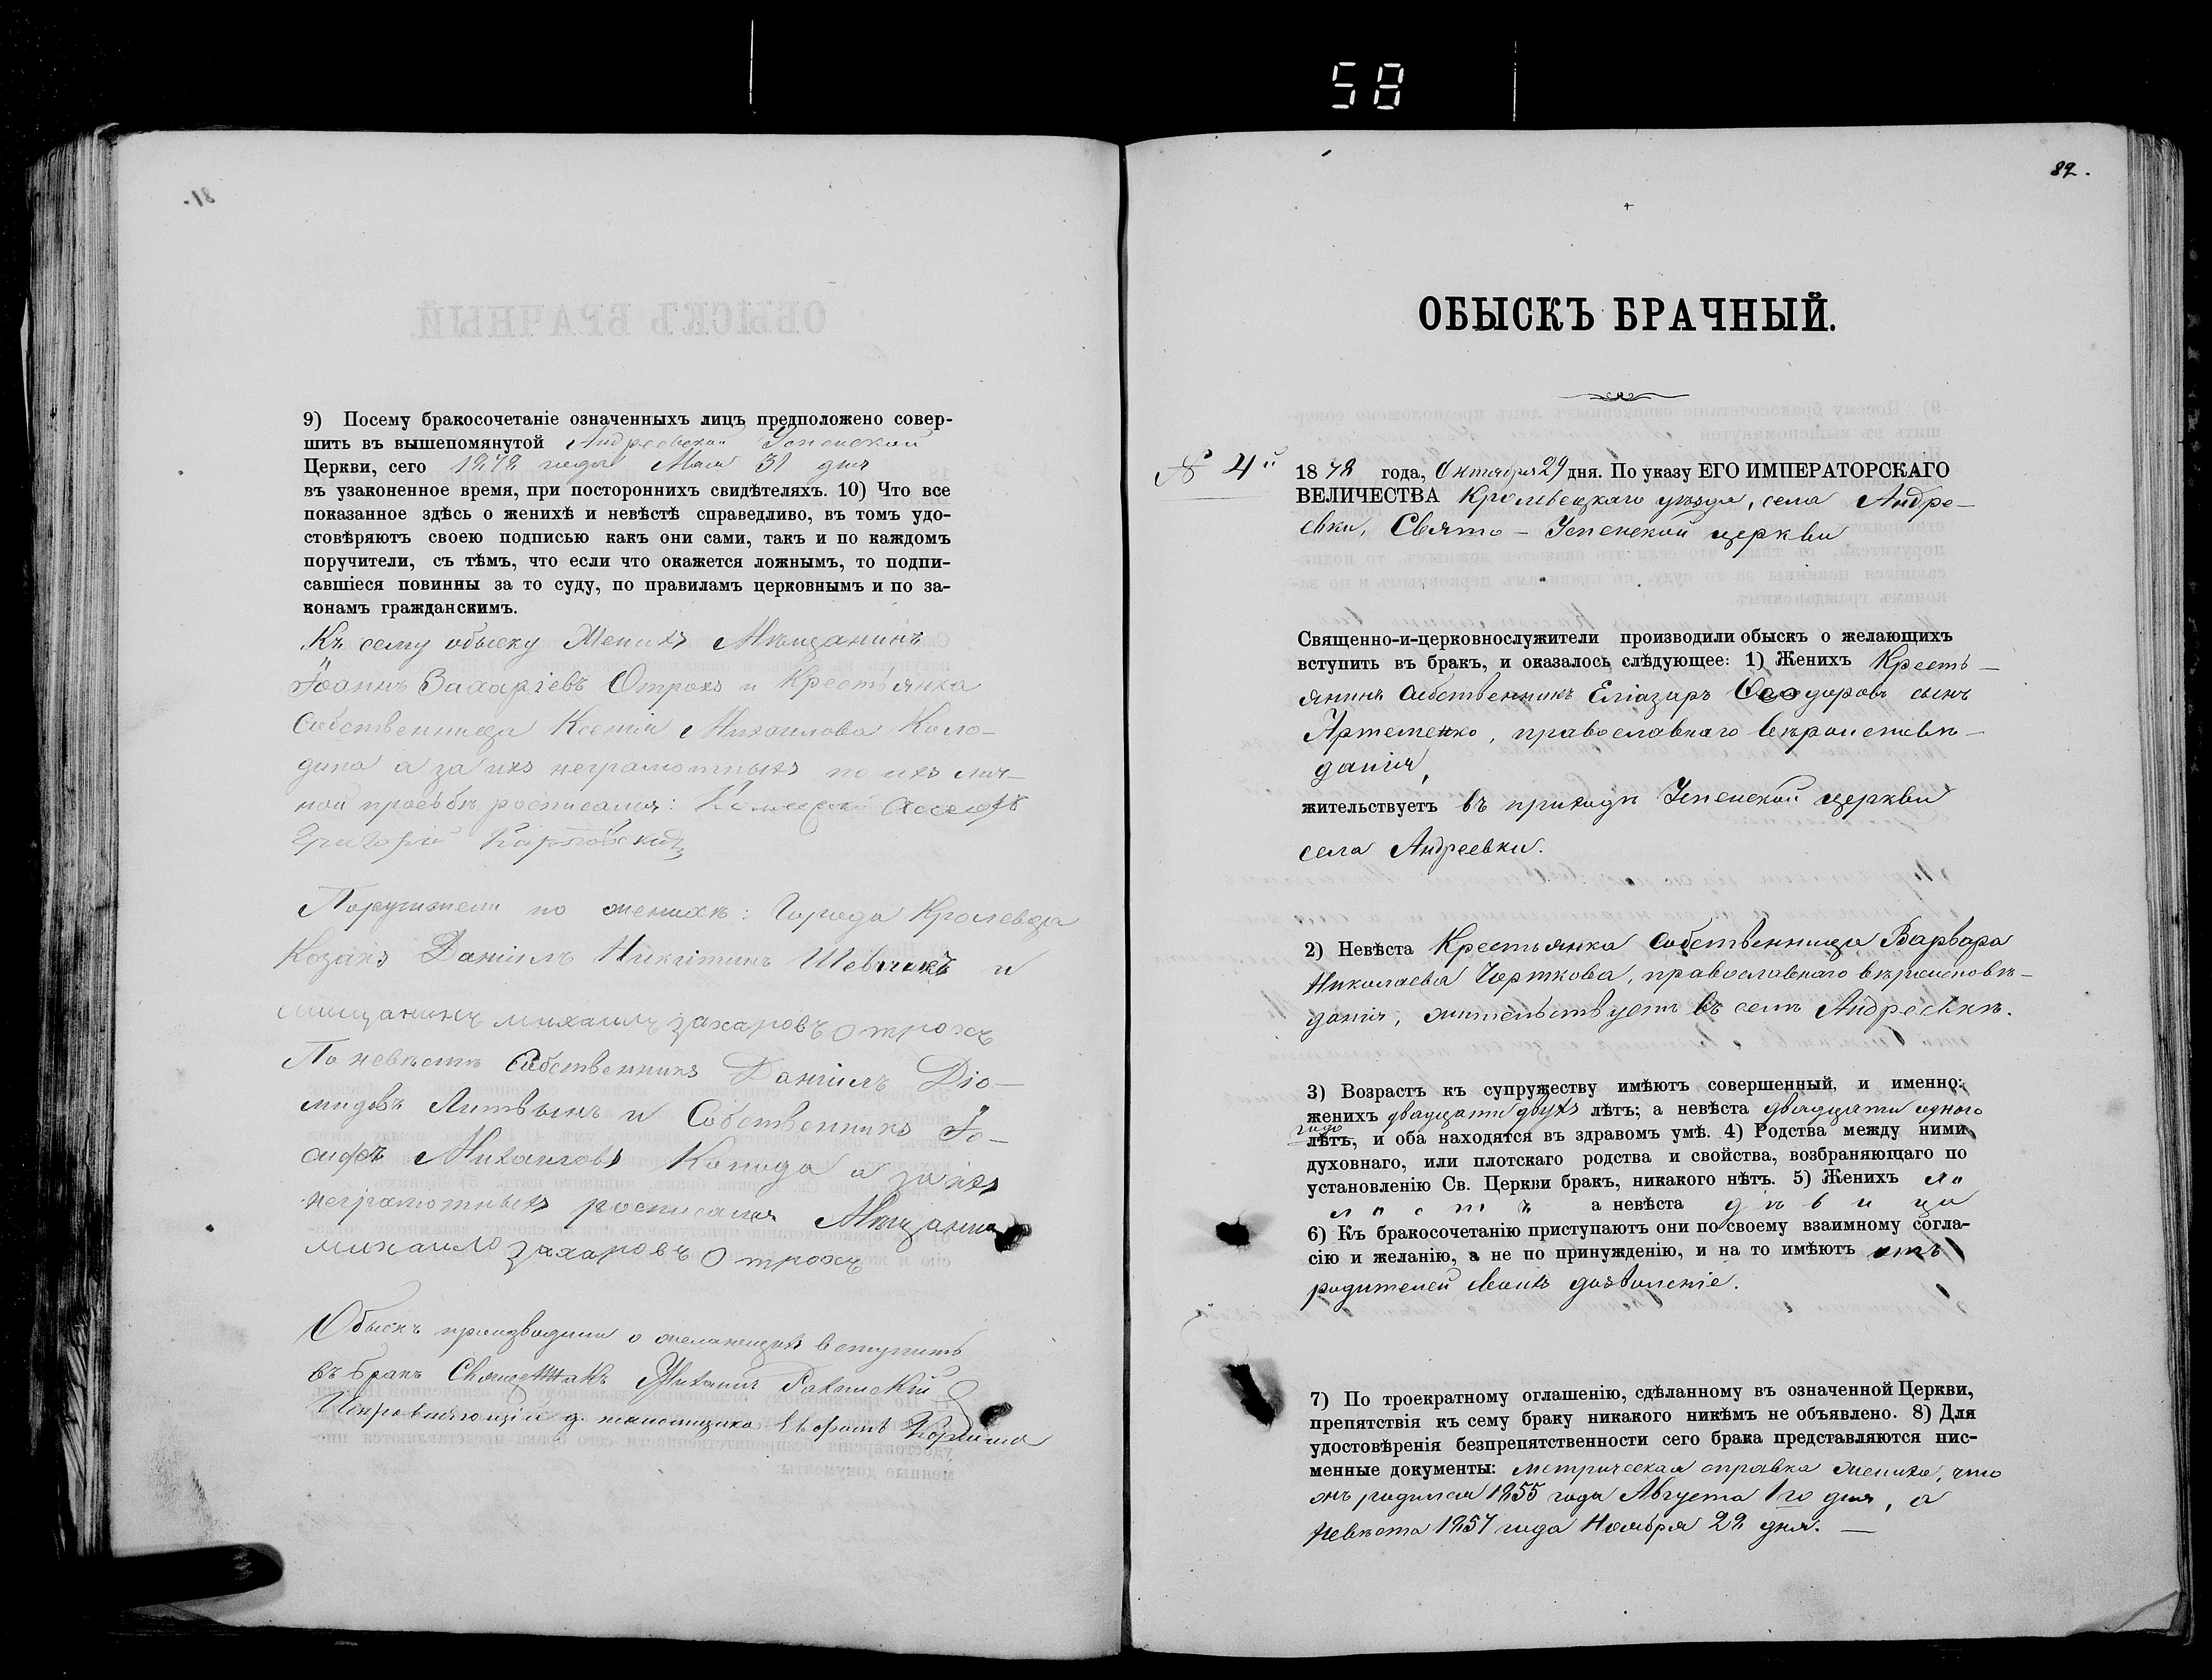 58
81.
9) Посему бракосочетаніе означенныхъ лицъ предположено совер-
шить въ вышепомянутой Андреевской Успенской
Церкви, сего 1878 года Мая 31 дня
въ узаконенное время, при постороннихъ свидѣтеляхъ. 10) Что все
показанное здѣсь о женихѣ и невѣстѣ справедливо, въ томъ удо-
стовѣряютъ своею подписью какъ они сами, такъ и по каждомъ
поручители, съ тѣмъ, что если что окажется ложнымъ, то подпи-
савшіеся повинны за то суду, по правиламъ церковнымъ и по за-
конамъ гражданскимъ.
Къ сему обыску Женихъ Мѣщанинъ
Іоаннъ Захаріевъ Отрохъ и Крестьянка
Собственница Ксенія Михаилова Коло-
дина а за ихъ неграмотныхъ по ихъ лич-
ной просьбѣ росписался:
Григорій
Поручители по женихѣ: Города Кролевца
Козакъ Даніилъ Никитинъ Шевчикъ и
мещанинъ михаилъ захаровъ Отрохъ
По невѣстѣ Собственникъ Даніилъ Діо-
мидовъ Литвинъ и Собственникъ Іо-
сифъ Михаиловъ а за ихъ
неграмотныхъ росписался Мѣщанин
михаило захаровъ Отрохъ
Обыскъ производили о желающихъ вступить
въ бракъ Священникъ
Исправляющій д. псаломщика
82.
ОБЫСКЪ БРАЧНЫЙ.
№ 4й
1878 года, Октября 29 дня. По указу ЕГО ИМПЕРАТОРСКАГО
ВЕЛИЧЕСТВА Кролевецкаго уѣзда, села Андре-
евки, Свято-Успенской церкви
Священно-и-церковнослужители производили обыскъ о желающихъ
вступить въ бракъ, и оказалось слѣдующее: 1) Женихъ Кресть-
янинъ собственникъ Еліазаръ Ѳеодоровъ сынъ
Артеменко, православнаго вѣроисповѣ-
данія,
жительствуетъ въ приходѣ Успенской церкви
села Андреевки.
2) Невѣста Крестьянка Собственница Варвара
Николаева Чорткова, православнаго вѣроисповѣ-
данія, жительствуетъ въ селѣ Андреевкѣ.
3) Возрастъ къ супружеству имѣютъ совершенный, и именно:
женихъ двадцати двухъ лѣтъ; а невѣста двадцати одного
года
лѣтъ, и оба находятся въ здравомъ умѣ. 4) Родства между ними
духовнаго, или плотскаго родства и свойства, возбраняющаго по
установленію Св. Церкви бракъ, никакого нѣтъ. 5) Женихъ хо
лостъ а невѣста дѣвица
6) Къ бракосочетанію приступаютъ они по своему взаимному согла-
сію и желанію, а не по принужденію, и на то имѣютъ отъ
родителей своихъ дозволеніе.
7) По троекратному оглашенію, сдѣланному въ означенной Церкви,
препятствія къ сему браку никакого никѣмъ не объявлено. 8) Для
удостовѣренія безпрепятственности сего брака представляются пис-
менные документы: метрическая справка жениха, что
онъ родился 1855 года Августа 1го дня, а
невѣста 1857 года Ноября 22 дня.